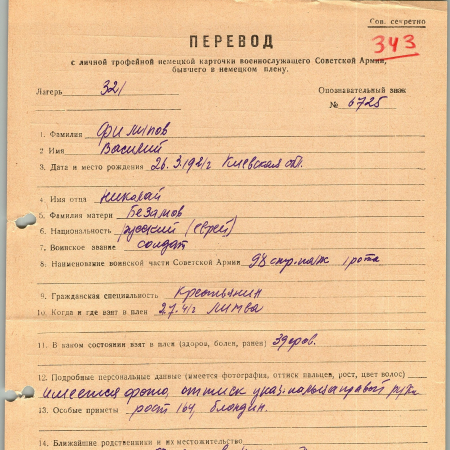 Сов. секретно
ПЕРЕВОД
343
с личной трофейной немецкой карточки военнослужащего Советской Армии,
бывшего в немецком плену.
Лагерь 321
Опознавательный знак
№ 6725
1. Фамилия Филипов
2. Имя Василий
3. Дата и место рождения 26.3.1921г Киевская обл.
4. Имя отца Николай
5. Фамилия матери Безамов
6. Национальность русский (еврей)
7. Воинское звание солдат
8. Наименование воинской части Советской Армии 98 стр. рота
9. Гражданская специальность Крестьянин
10. Когда и где взят в плен 2.7.41г Литва
11. В каком состоянии взят в плен (здоров, болен, ранен) здоров.
12. Подробные персональные данные (имеется фотография, оттиск пальцев, рост, цвет волос)
имеется фото, оттиск указ. пальца правой руки
13. Особые приметы рост 164, блондин.
14. Ближайшие родственники и их местожительство